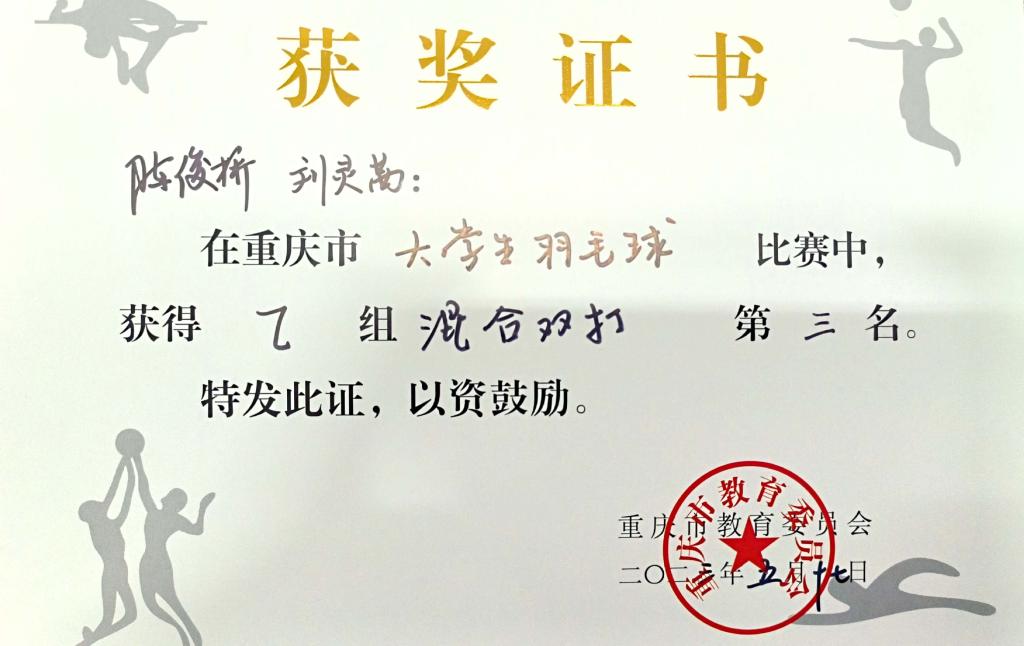 获奖证书
陈俊桥 刘灵茜:
在重庆市 大学生羽毛球 比赛中,
获得 乙 组 混合双打 第 三 名。
特发此证, 以资鼓励。
重庆市教育委员会
二〇二三年五月十七日
重庆市教育委员会